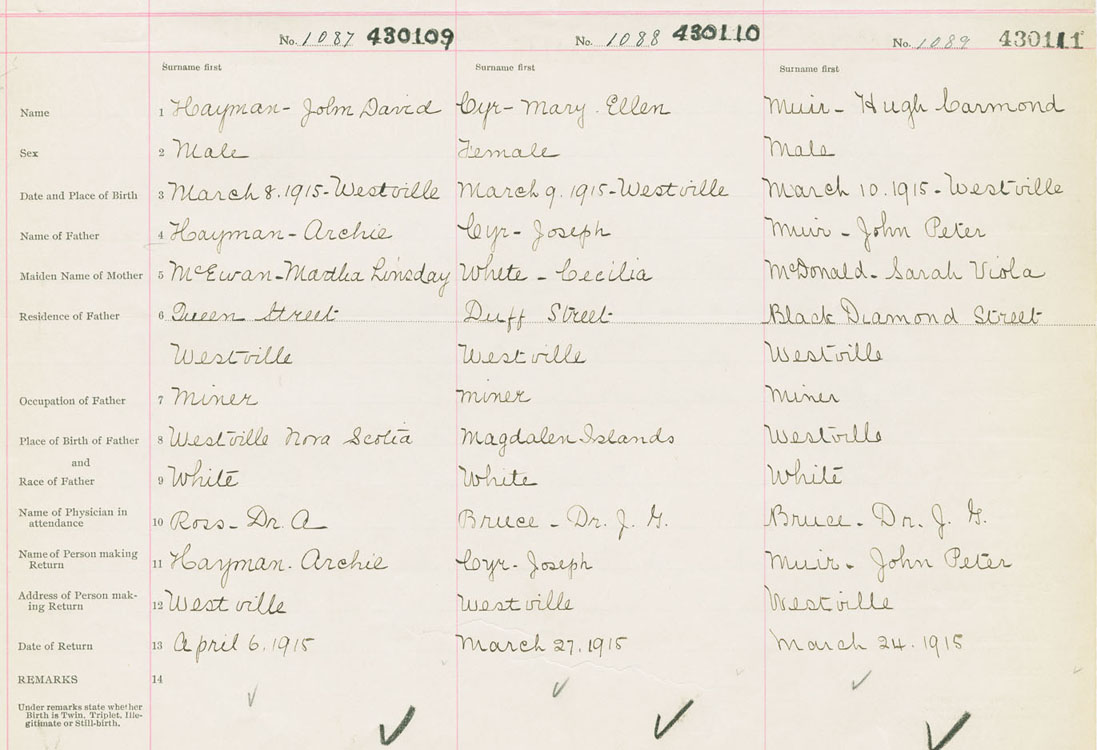 No. 1087 430109 No. 1088 430110 No. 1089 430111
Surname first Surname first Surname first
Name 1 Hayman - John David Cyr - Mary. Ellen Muir - Hugh Carmond
Sex 2 Male Female Male
Date and Place of Birth 3 March 8. 1915 - Westville March 9. 1915 - Westville March 10. 1915 - Westville
Name of Father 4 Hayman - Archie Cyr - Joseph Muir - John Peter
Maiden Name of Mother 5 McEwan - Martha Linsday White - Cecilia McDonald - Sarah Viola
Residence of Father 6 Queen Street Duff Street Black Diamond Street
Westville Westville Westville
Occupation of Father 7 Miner miner Miner
Place of Birth of Father 8 Westville Nova Scotia Magdalen Islands Westville
and
Race of Father 9 White White White
Name of Physician in
attendance 10 Ross - Dr. A Bruce - Dr. J. G. Bruce - Dr. J. G.
Name of Person making
Return 11 Hayman. Archie Cyr - Joseph Muir - John Peter
Address of Person mak-
ing Return 12 Westville Westville Westville
Date of Return 13 April 6. 1915 March 27. 1915 March 24. 1915
REMARKS 14
Under remarks state whether
Birth is Twin, Triplet, Ille-
gitimate or Still-birth.